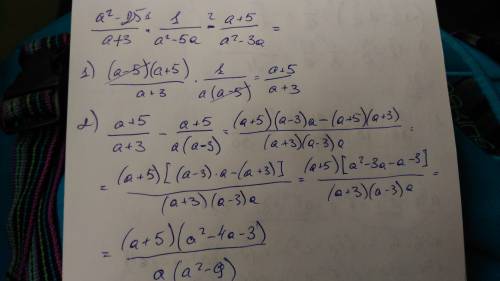 (a² - 25)/(a+3) ·¹ 1/(a² - 5a) -² (a+5)/(a² - 3a) =
1) (a-5)(a+5)/(a+3) · 1/(a(a-5)) = (a+5)/(a+3)
2) (a+5)/(a+3) - (a+5)/(a(a-3)) = ((a+5)(a-3)a - (a+5)(a+3))/((a+3)(a-3)a) =
= (a+5)[(a-3)·a-(a+3)]/((a+3)(a-3)a) = (a+5)[a²-3a-a-3]/((a+3)(a-3)a) =
= (a+5)(a²-4a-3)/(a(a²-9))